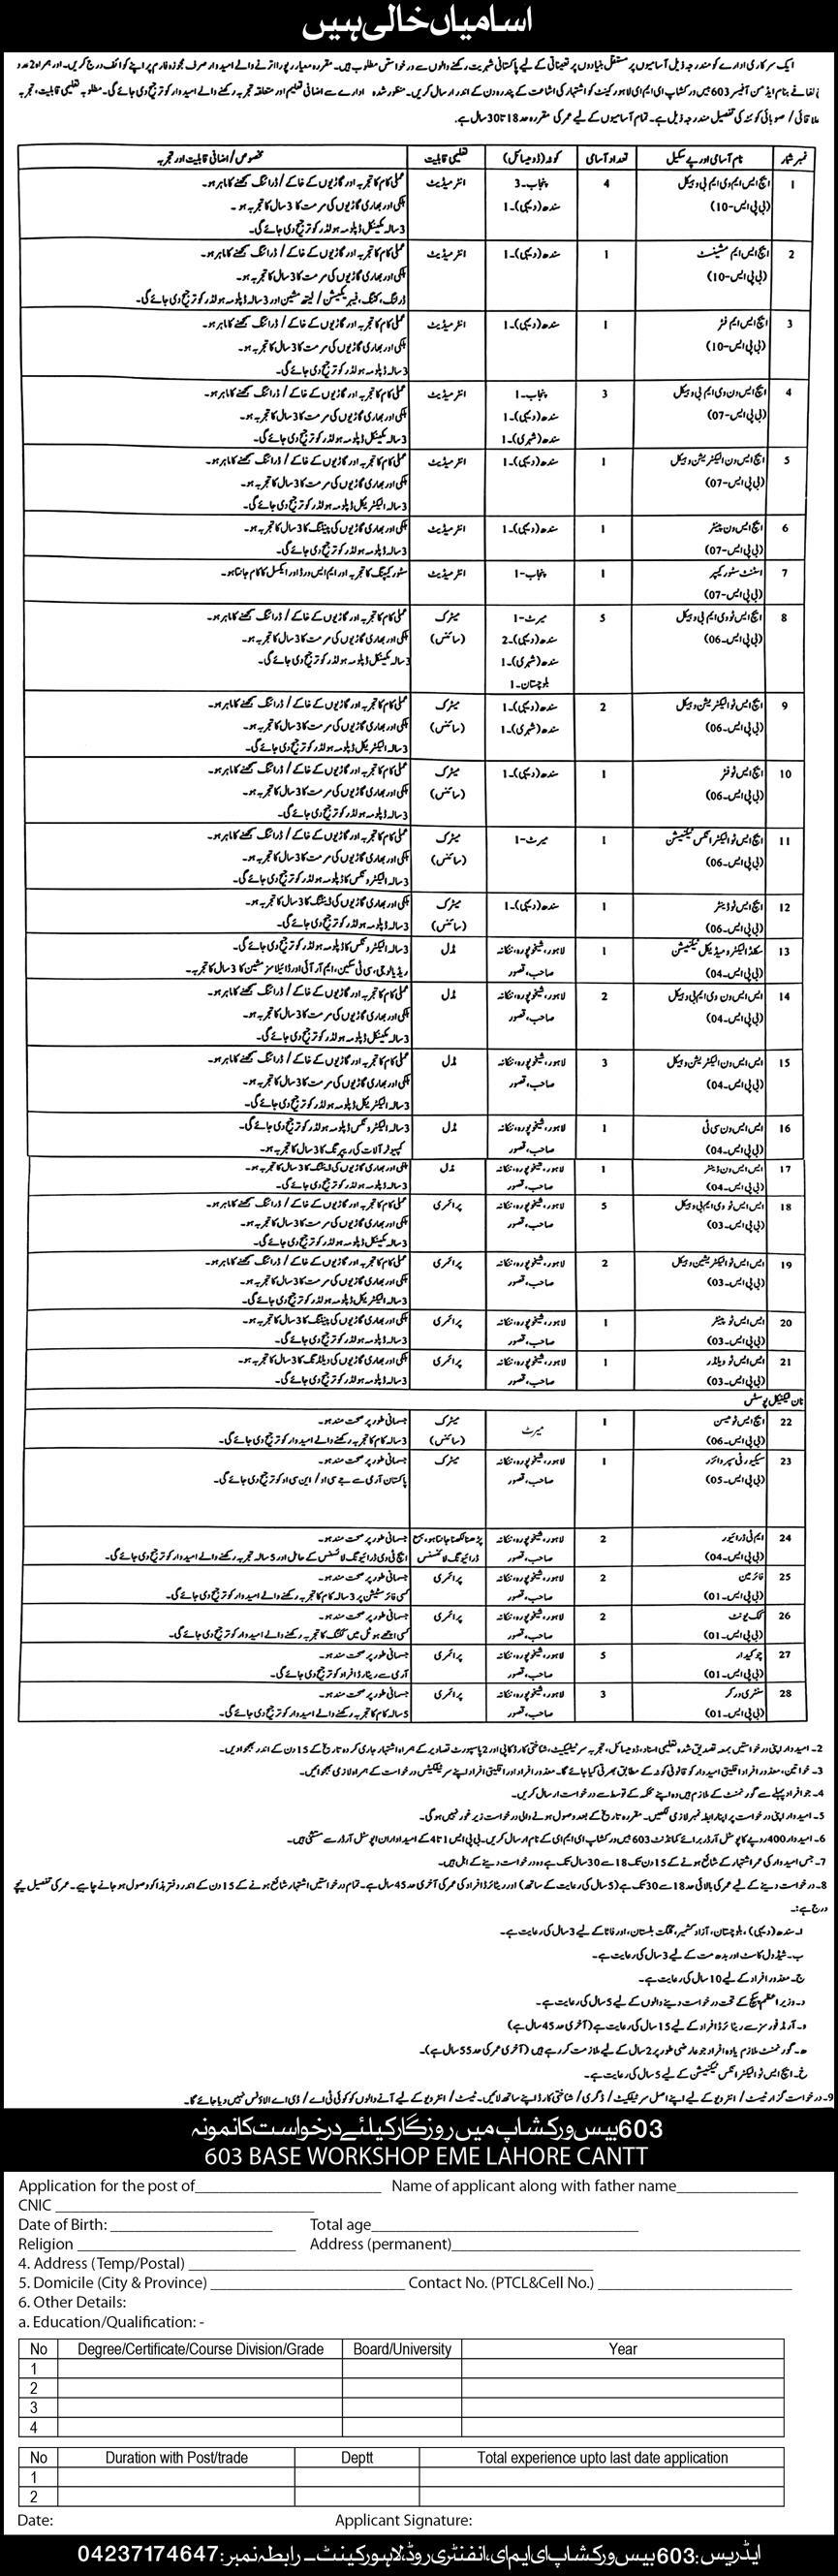 اسامیاں خالی ہیں
ایک سرکاری ادارے کو مندرجہ ذیل آسامیوں پر مستقل بنیادوں پر تعیناتی کے لیے پاکستانی شہریت رکھنے والوں سے درخواستیں مطلوب ہیں۔ مقررہ معیار پر پورا اترنے والے امیدوار صرف مجوزہ فارم پر اپنے کوائف درج کریں۔ اور ہمراہ 2 عدد
لفافے بنام ایڈمن آفیسر 603 بیس ورکشاپ ای ایم ای لاہور کینٹ کو اشتہار کی اشاعت کے پندرہ دن کے اندر ارسال کریں۔ منظور شدہ ادارے سے اضافی تعلیم اور متعلقہ تجربہ رکھنے والے امیدوار کو ترجیح دی جائے گی۔ مطلوبہ تعلیمی قابلیت، تجربہ
علاقائی / صوبائی کوٹہ کی تفصیل مندرجہ ذیل ہے۔ تمام آسامیوں کے لیے عمر کی مقررہ حد 18 تا 30 سال ہے۔
نمبر شمار نام آسامی اور پے سکیل تعداد آسامی کوٹہ (ڈومیسائل) تعلیمی قابلیت مخصوص / اضافی قابلیت اور تجربہ
1 ایچ ایس ایم وی ایم بی وہیکل 4 پنجاب-3 انٹرمیڈیٹ عملی کام کا تجربہ اور گاڑیوں کے خاکے / ڈرائنگ سمجھنے کا ماہر ہو۔
(بی پی ایس-10) سندھ (دیہی)-1 ہلکی اور بھاری گاڑیوں کی مرمت کا 3 سال کا تجربہ ہو۔
3 سالہ مکینیکل ڈپلومہ ہولڈر کو ترجیح دی جائے گی۔
2 ایچ ایس ایم مشینسٹ 1 سندھ (دیہی)-1 انٹرمیڈیٹ عملی کام کا تجربہ اور گاڑیوں کے خاکے / ڈرائنگ سمجھنے کا ماہر ہو۔
(بی پی ایس-10) ہلکی اور بھاری گاڑیوں کی مرمت کا 3 سال کا تجربہ ہو۔
ڈرلنگ، کٹنگ، فیبریکیشن / لیتھ مشین اور 3 سالہ ڈپلومہ ہولڈر کو ترجیح دی جائے گی۔
3 ایچ ایس ایم فٹر 1 سندھ (دیہی)-1 انٹرمیڈیٹ عملی کام کا تجربہ اور گاڑیوں کے خاکے / ڈرائنگ سمجھنے کا ماہر ہو۔
(بی پی ایس-10) ہلکی اور بھاری گاڑیوں کی مرمت کا 3 سال کا تجربہ ہو۔
3 سالہ ڈپلومہ ہولڈر کو ترجیح دی جائے گی۔
4 ایچ ایس ون وی ایم بی وہیکل 3 پنجاب-1 انٹرمیڈیٹ عملی کام کا تجربہ اور گاڑیوں کے خاکے / ڈرائنگ سمجھنے کا ماہر ہو۔
(بی پی ایس-07) سندھ (دیہی)-1 ہلکی اور بھاری گاڑیوں کی مرمت کا 3 سال کا تجربہ ہو۔
سندھ (شہری)-1 3 سالہ مکینیکل ڈپلومہ ہولڈر کو ترجیح دی جائے گی۔
5 ایچ ایس ون الیکٹریشن وہیکل 1 سندھ (دیہی)-1 انٹرمیڈیٹ عملی کام کا تجربہ اور گاڑیوں کے خاکے / ڈرائنگ سمجھنے کا ماہر ہو۔
(بی پی ایس-07) ہلکی اور بھاری گاڑیوں کی مرمت کا 3 سال کا تجربہ ہو۔
3 سالہ الیکٹریکل ڈپلومہ ہولڈر کو ترجیح دی جائے گی۔
6 ایچ ایس ون پینٹر 1 سندھ (دیہی)-1 انٹرمیڈیٹ ہلکی اور بھاری گاڑیوں کی پینٹنگ کا 3 سال کا تجربہ ہو۔
(بی پی ایس-07) 3 سالہ ڈپلومہ ہولڈر کو ترجیح دی جائے گی۔
7 اسسٹنٹ سٹور کیپر 1 پنجاب-1 انٹرمیڈیٹ سٹور کیپنگ کا تجربہ اور ایم ایس ورڈ اور ایکسل کا کام جانتا ہو۔
(بی پی ایس-07)
8 ایچ ایس ٹو وی ایم بی وہیکل 5 میرٹ-1 میٹرک عملی کام کا تجربہ اور گاڑیوں کے خاکے / ڈرائنگ سمجھنے کا ماہر ہو۔
(بی پی ایس-06) سندھ (دیہی)-2 (سائنس) ہلکی اور بھاری گاڑیوں کی مرمت کا 3 سال کا تجربہ ہو۔
سندھ (شہری)-1 3 سالہ مکینیکل ڈپلومہ ہولڈر کو ترجیح دی جائے گی۔
بلوچستان-1
9 ایچ ایس ٹو الیکٹریشن وہیکل 2 سندھ (دیہی)-1 میٹرک عملی کام کا تجربہ اور گاڑیوں کے خاکے / ڈرائنگ سمجھنے کا ماہر ہو۔
(بی پی ایس-06) سندھ (شہری)-1 (سائنس) ہلکی اور بھاری گاڑیوں کی مرمت کا 3 سال کا تجربہ ہو۔
3 سالہ الیکٹریکل ڈپلومہ ہولڈر کو ترجیح دی جائے گی۔
10 ایچ ایس ٹو فٹر 1 سندھ (دیہی)-1 میٹرک عملی کام کا تجربہ اور گاڑیوں کے خاکے / ڈرائنگ سمجھنے کا ماہر ہو۔
(بی پی ایس-06) (سائنس) ہلکی اور بھاری گاڑیوں کی مرمت کا 3 سال کا تجربہ ہو۔
3 سالہ ڈپلومہ ہولڈر کو ترجیح دی جائے گی۔
11 ایچ ایس ٹو الیکٹرانکس ٹیکنیشن 1 میرٹ-1 میٹرک عملی کام کا تجربہ اور گاڑیوں کے خاکے / ڈرائنگ سمجھنے کا ماہر ہو۔
(بی پی ایس-06) (سائنس) ہلکی اور بھاری گاڑیوں کی مرمت کا 3 سال کا تجربہ ہو۔
3 سالہ الیکٹرونکس کا ڈپلومہ ہولڈر کو ترجیح دی جائے گی۔
12 ایچ ایس ٹو ڈینٹر 1 سندھ (دیہی)-1 میٹرک ہلکی اور بھاری گاڑیوں کی ڈینٹنگ کا 3 سال کا تجربہ ہو۔
(بی پی ایس-06) (سائنس) 3 سالہ ڈپلومہ ہولڈر کو ترجیح دی جائے گی۔
13 سکلڈ الیکٹرو میڈیکل ٹیکنیشن 1 لاہور، شیخوپورہ، ننکانہ مڈل 3 سالہ الیکٹرونکس کا ڈپلومہ ہولڈر کو ترجیح دی جائے گی۔
(بی پی ایس-04) صاحب، قصور ریڈیالوجی، سی ٹی سکین، ایم آر آئی اور ڈائیلاسز مشین کا 3 سال کا تجربہ۔
14 ایس ایس ون وی ایم بی وہیکل 2 لاہور، شیخوپورہ، ننکانہ مڈل عملی کام کا تجربہ اور گاڑیوں کے خاکے / ڈرائنگ سمجھنے کا ماہر ہو۔
(بی پی ایس-04) صاحب، قصور ہلکی اور بھاری گاڑیوں کی مرمت کا 3 سال کا تجربہ ہو۔
3 سالہ مکینیکل ڈپلومہ ہولڈر کو ترجیح دی جائے گی۔
15 ایس ایس ون الیکٹریشن وہیکل 3 لاہور، شیخوپورہ، ننکانہ مڈل عملی کام کا تجربہ اور گاڑیوں کے خاکے / ڈرائنگ سمجھنے کا ماہر ہو۔
(بی پی ایس-04) صاحب، قصور ہلکی اور بھاری گاڑیوں کی مرمت کا 3 سال کا تجربہ ہو۔
3 سالہ الیکٹریکل ڈپلومہ ہولڈر کو ترجیح دی جائے گی۔
16 ایس ایس ون سی ٹی 1 لاہور، شیخوپورہ، ننکانہ مڈل 3 سالہ الیکٹرونکس ڈپلومہ ہولڈر کو ترجیح دی جائے گی۔
(بی پی ایس-04) صاحب، قصور کمپیوٹر آلات کی ریپرنگ کا 3 سال کا تجربہ ہو۔
17 ایس ایس ون ڈینٹر 1 لاہور، شیخوپورہ، ننکانہ مڈل ہلکی اور بھاری گاڑیوں کی ڈینٹنگ کا 3 سال کا تجربہ ہو۔
(بی پی ایس-04) صاحب، قصور 3 سالہ ڈپلومہ ہولڈر کو ترجیح دی جائے گی۔
18 ایس ایس ٹو وی ایم بی وہیکل 5 لاہور، شیخوپورہ، ننکانہ پرائمری عملی کام کا تجربہ اور گاڑیوں کے خاکے / ڈرائنگ سمجھنے کا ماہر ہو۔
(بی پی ایس-03) صاحب، قصور ہلکی اور بھاری گاڑیوں کی مرمت کا 3 سال کا تجربہ ہو۔
3 سالہ مکینیکل ڈپلومہ ہولڈر کو ترجیح دی جائے گی۔
19 ایس ایس ٹو الیکٹریشن وہیکل 2 لاہور، شیخوپورہ، ننکانہ پرائمری عملی کام کا تجربہ اور گاڑیوں کے خاکے / ڈرائنگ سمجھنے کا ماہر ہو۔
(بی پی ایس-03) صاحب، قصور ہلکی اور بھاری گاڑیوں کی مرمت کا 3 سال کا تجربہ ہو۔
3 سالہ الیکٹریکل ڈپلومہ ہولڈر کو ترجیح دی جائے گی۔
20 ایس ایس ٹو پینٹر 1 لاہور، شیخوپورہ، ننکانہ پرائمری ہلکی اور بھاری گاڑیوں کی پینٹنگ کا 3 سال کا تجربہ ہو۔
(بی پی ایس-03) صاحب، قصور 3 سالہ ڈپلومہ ہولڈر کو ترجیح دی جائے گی۔
21 ایس ایس ٹو ویلڈر 1 لاہور، شیخوپورہ، ننکانہ پرائمری ہلکی اور بھاری گاڑیوں کی ویلڈنگ کا 3 سال کا تجربہ ہو۔
(بی پی ایس-03) صاحب، قصور 3 سالہ ڈپلومہ ہولڈر کو ترجیح دی جائے گی۔
نان ٹیکنیکل پوسٹس
22 ایچ ایس ٹو میسن 1 میرٹ میٹرک جسمانی طور پر صحت مند ہو۔
(بی پی ایس-06) (سائنس) 3 سالہ کام کا تجربہ رکھنے والے امیدوار کو ترجیح دی جائے گی۔
23 سیکیورٹی سپروائزر 1 لاہور، شیخوپورہ، ننکانہ میٹرک جسمانی طور پر صحت مند ہو۔
(بی پی ایس-05) صاحب، قصور پاکستان آرمی سے جے سی او / این سی او کو ترجیح دی جائے گی۔
24 ایم ٹی ڈرائیور 2 لاہور، شیخوپورہ، ننکانہ پڑھنا لکھنا جانتا ہو، بمع جسمانی طور پر صحت مند ہو۔
(بی پی ایس-04) صاحب، قصور ڈرائیونگ لائسنس ایچ ٹی وی ڈرائیونگ لائسنس کے حامل اور 5 سالہ تجربہ رکھنے والے امیدوار کو ترجیح دی جائے گی۔
25 فائرمین 2 لاہور، شیخوپورہ، ننکانہ پرائمری جسمانی طور پر صحت مند ہو۔
(بی پی ایس-01) صاحب، قصور کسی فائر سٹیشن پر 3 سالہ کام کا تجربہ رکھنے والے امیدوار کو ترجیح دی جائے گی۔
26 کک یونٹ 2 لاہور، شیخوپورہ، ننکانہ پرائمری جسمانی طور پر صحت مند ہو۔
(بی پی ایس-01) صاحب، قصور کسی اچھے ہوٹل میں ککنگ کا تجربہ رکھنے والے امیدوار کو ترجیح دی جائے گی۔
27 چوکیدار 5 لاہور، شیخوپورہ، ننکانہ پرائمری جسمانی طور پر صحت مند ہو۔
(بی پی ایس-01) صاحب، قصور آرمی سے ریٹائرڈ افراد کو ترجیح دی جائے گی۔
28 سنٹری ورکر 3 لاہور، شیخوپورہ، ننکانہ پرائمری جسمانی طور پر صحت مند ہو۔
(بی پی ایس-01) صاحب، قصور 5 سالہ کام کا تجربہ رکھنے والے امیدوار کو ترجیح دی جائے گی۔
2- امیدوار اپنی درخواستیں بمعہ تصدیق شدہ تعلیمی اسناد، ڈومیسائل، تجربہ سرٹیفکیٹ، شناختی کارڈ کاپی اور 2 پاسپورٹ تصاویر کے ہمراہ اشتہار جاری کردہ تاریخ کے 15 دن کے اندر بھجوا دیں۔
3- خواتین، معذور افراد اقلیتی امیدوار کو قانونی کوٹہ کے مطابق بھرتی کیا جائے گا۔ معذور افراد اور اقلیتی افراد اپنے سرٹیفکیٹس درخواست کے ہمراہ لازمی بھجوائیں۔
4- جو افراد پہلے سے گورنمنٹ کے ملازم ہیں وہ اپنے محکمہ کے توسط سے درخواست ارسال کریں۔
5- امیدوار اپنی درخواست پر اپنا رابطہ نمبر لازمی لکھیں۔ مقررہ تاریخ کے بعد وصول ہونے والی درخواست زیر غور نہیں ہوگی۔
6- امیدوار 400 روپے کا پوسٹل آرڈر برائے کمانڈنٹ 603 بیس ورکشاپ ای ایم ای کے نام ارسال کریں۔ بی پی ایس 1 تا 4 کے امیدواران پوسٹل آرڈر سے مستثنیٰ ہیں۔
7- جس امیدوار کی عمر اشتہار کے شائع ہونے کے 15 دن تک 18 سے 30 سال تک ہے وہ درخواست دینے کے اہل ہیں۔
8- درخواست دینے کے لیے عمر کی بالائی حد 18 سے 30 تک ہے (5 سال کی رعایت کے ساتھ) اور ریٹائرڈ افراد کی عمر کی آخری حد 45 سال ہے۔ تمام درخواستیں اشتہار شائع ہونے کے 15 دن کے اندر دفتر ہذا کو وصول ہو جانے چاہیے۔ عمر کی تفصیل نیچے
درج ہے:۔
ا۔ سندھ (دیہی)، بلوچستان، آزاد کشمیر، گلگت بلتستان، اور فاٹا کے لیے 3 سال کی رعایت ہے۔
ب۔ شیڈول کاسٹ اور بدھ مت کے لیے 3 سال کی رعایت ہے۔
ج۔ معذور افراد کے لیے 10 سال کی رعایت ہے۔
د۔ وزیراعظم پیکج کے تحت درخواست دینے والوں کے لیے 5 سال کی رعایت ہے۔
و۔ آرمڈ فورسز سے ریٹائرڈ افراد کے لیے 15 سال کی رعایت ہے (آخری حد 45 سال ہے)
ہ۔ گورنمنٹ ملازم یا وہ افراد جو عارضی طور پر 2 سال کے لیے ملازمت کر رہے ہیں (آخری عمر کی حد 55 سال ہے)۔
خ۔ ایچ ایس ٹو الیکٹرانکس ٹیکنیشن کے لیے 5 سال کی رعایت ہے۔
9- درخواست گزار ٹیسٹ / انٹرویو کے لیے اپنے اصل سرٹیفکیٹ / ڈگری / شناختی کارڈ اپنے ساتھ لائیں۔ ٹیسٹ / انٹرویو کے لیے آنے والوں کو کوئی ٹی اے / ڈی اے الاؤنس نہیں دیا جائے گا۔
603 بیس ورکشاپ میں روزگار کیلئے درخواست کا نمونہ
603 BASE WORKSHOP EME LAHORE CANTT
Application for the post of Name of applicant along with father name
CNIC
Date of Birth: Total age
Religion Address (permanent)
4. Address (Temp/Postal)
5. Domicile (City & Province) Contact No. (PTCL&Cell No.)
6. Other Details:
a. Education/Qualification: -
No Degree/Certificate/Course Division/Grade Board/University Year
1
2
3
4
No Duration with Post/trade Deptt Total experience upto last date application
1
2
Date: Applicant Signature:
ایڈریس: 603 بیس ورکشاپ ای ایم ای، انفنٹری روڈ، لاہور کینٹ – رابطہ نمبر: 04237174647